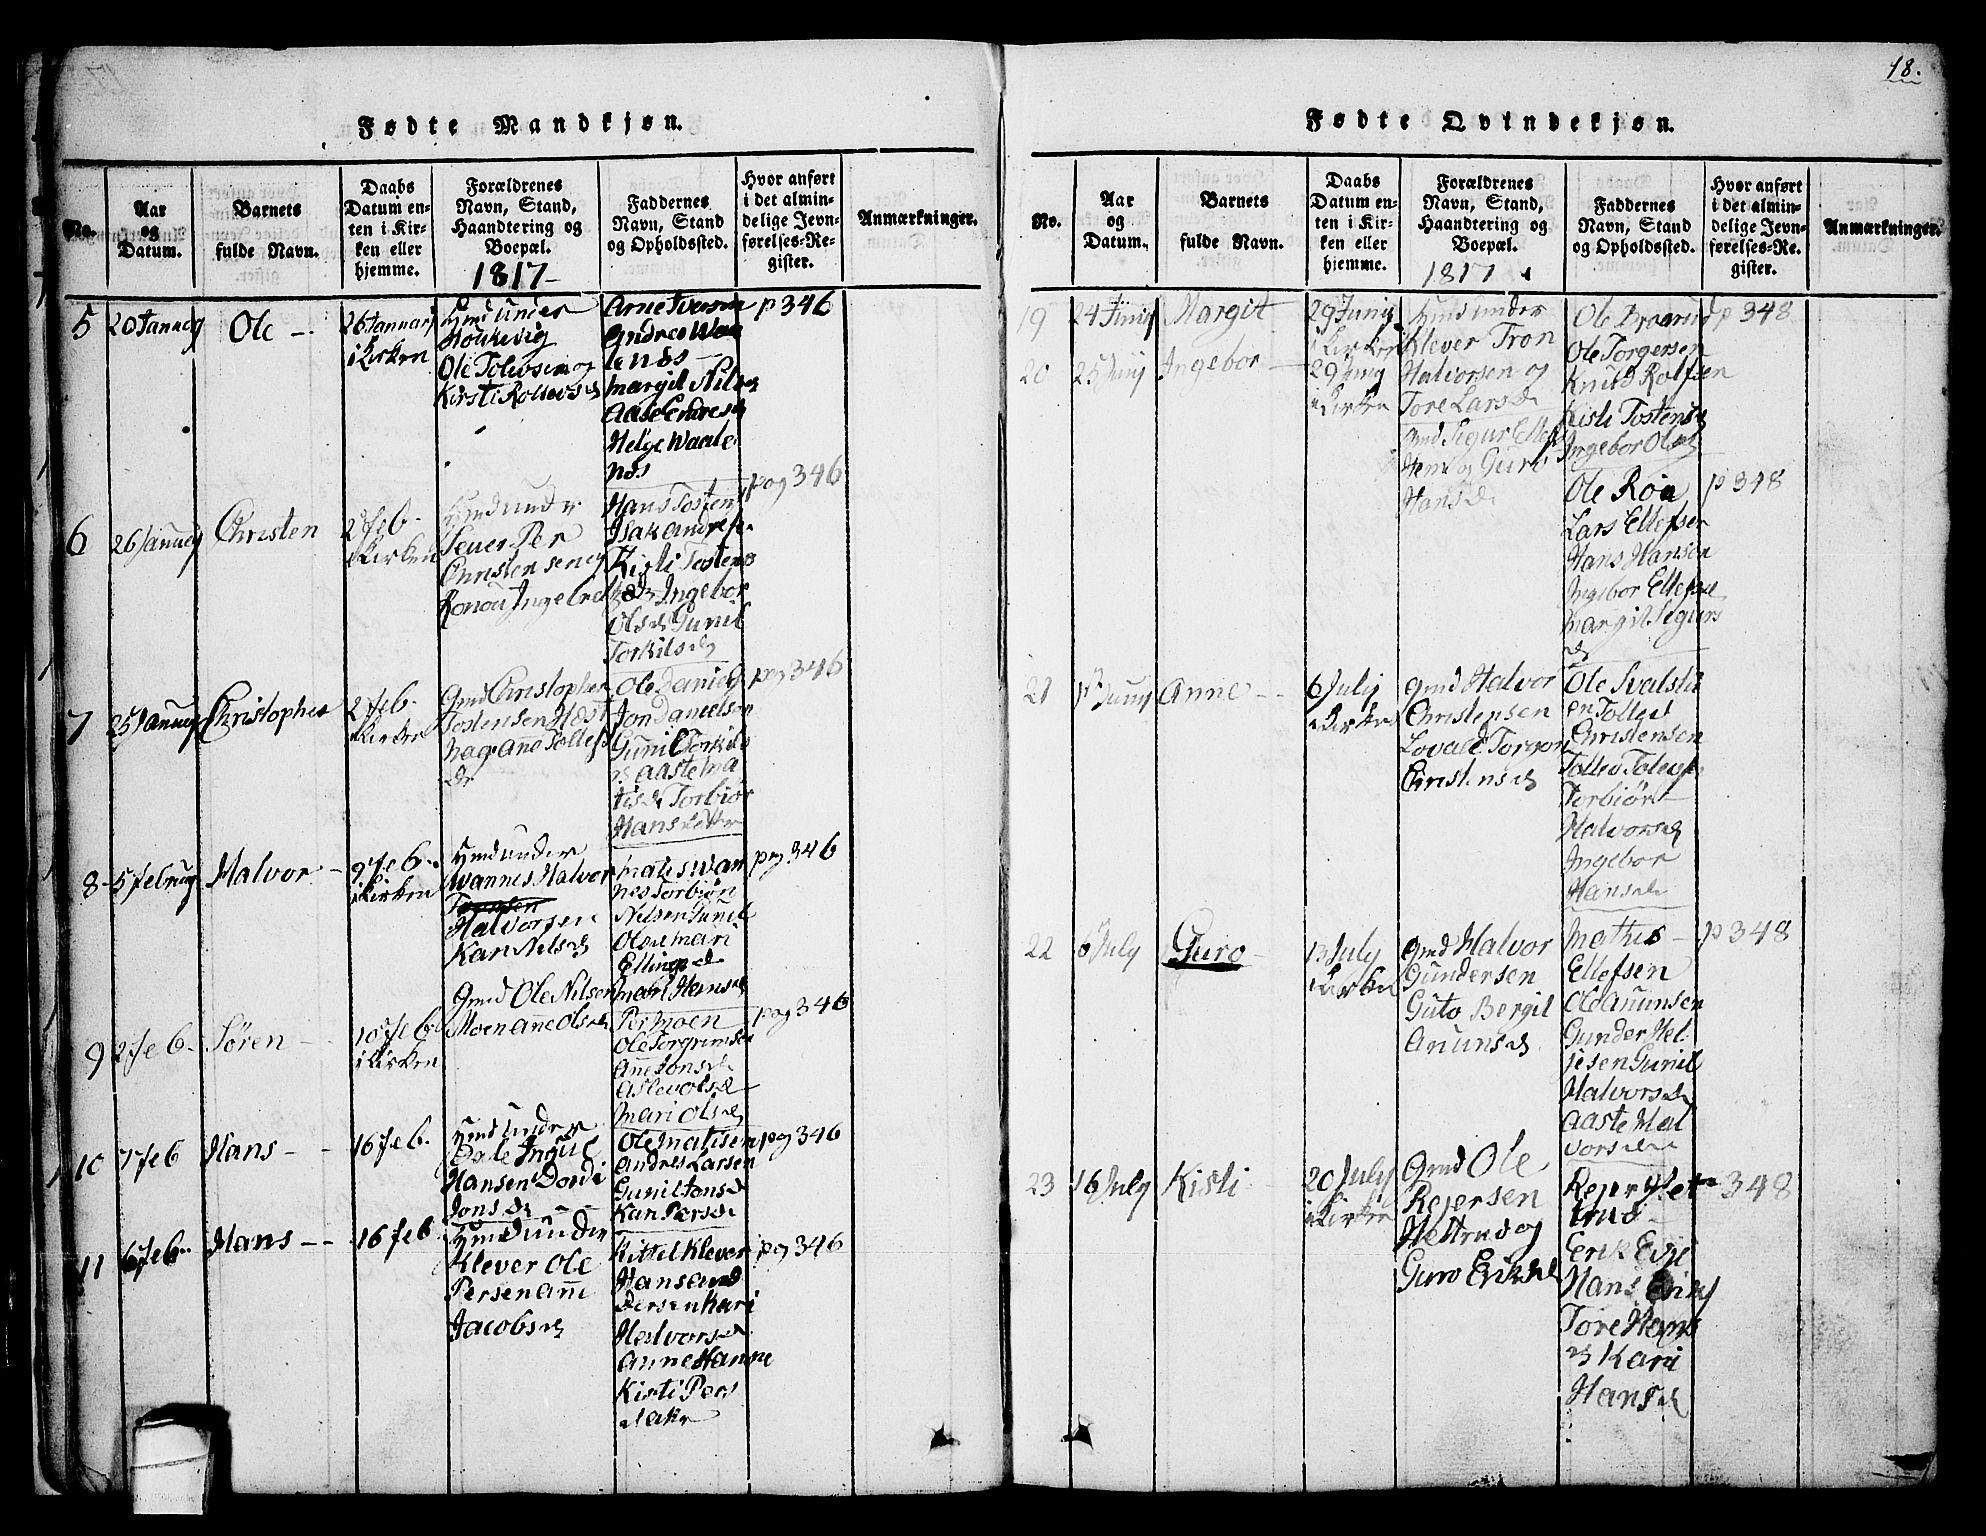 18.
Fødte Mandkjøn.
No.
Aar
og
Datum.
Barnets
fulde Navn.
Daabs
Datum en-
ten i Kir-
ken eller
hjemme.
Forældrenes
Navn, Stand,
Haandtering og
Boepæl.
1817
Faddernes
Navn, Stand
og Opholdssted.
Hvor anført
i det almin-
delige Jevn-
førelses-Re-
gister.
Anmærkninger.
5
20 Januarj
Ole
26 Januarj
i Kirken
Hmd under
Holkevig
Ole Tolevsen og
Kirsti Rollevsd
Arne Iversen
Andreo Waa
lenøs
Margit Nils
Aase Endresd
Helge Waale
nøs
p 346
6
26 Januarj
Christen
2 feb.
i Kirken
Hmd under
Per
Christensen og
Hans Tosten
Isak Andrese
Kisti Tostens
Ingebor
Olsd Gunil
Torkilsd
pag 346
7
25 Januarj
Christopher
2 feb.
i Kirken
Gmd Christopher
Tostensen
hag Anne Tollefs
d
Ole Daniels
Jon Danielsen
Gunil Torkils
d Aaste Ma
tisd Torbiør
Hans
pag 346
8
5 februarj
Halvor
9 feb.
i Kirken
Hmd under
Wannes Halvor
Halvorsen
Kari Nilsd
Mates Wan
nes Torbiøn
Nilsen Gunil
Olsd Mari
Ellingsd
Mari Hansd
pag 346
9
2 feb.
Søren
10 feb.
i Kirken
Gmd Ole Nilsen
Moen Anne Olsd
Per Moen
Ole Torgrimsen
Anne Jonsd
Aslev Olsd
Mari Olsd
pag 346
10
7 feb
Hans
16 feb.
Hmd under
Dale Ingul
Hansen Dordi
Jonsd
Ole Matisen
Andres Larsen
Gunil Jonsd
Kari Persd
pag 346
11
6 feb.
Hans
16 feb.
Hmd under
Klever Ole
Persen Anne
Jacobsd
Kittel Klever
Hans And
dersen Kari
Halvorsd
Anne Hanne
Kisti Pers
pag 346
Fødte Qvindekjøn.
No.
Aar
og
Datum.
Barnets
fulde Navn.
Daabs
Datum en-
ten i Kir-
ken eller
hjemme.
Forældrenes
Navn, Stand,
Haandtering og
Boepæl.
1817
Faddernes
Navn, Stand
og Opholdssted.
Hvor anført
i det almin-
delige Jevn-
førelses-Re-
gister.
Anmærkninger.
19
24 Junij
Margit
29 Junij
i Kirken
Hmd under
Klever Tron
Halvorsen og
Tore Larsd
Ole Braarud
Ole Torgersen
Knud Rolfsen
Kisti Tostensd
Ingebor Olsd
p 348
20
25 Junij
Ingebor
29 Junij
i Kirken
Gmd Sigur Ellef
sen og Guro
Hansd
Ole Roa
Lars Ellefsen
Hans Hansen
Ingebor Ellefsd
Margit Sigurs
d
p 348
21
1 Junij
Anne
6 Julij
i Kirken
Gmd Halvor
Christensen
Lovald Torgon
Christensd
Ole Svalsta
en Tolled
Christensen
Tollev Tolevs
Torbiør
Halvorsd
Ingebor
Hansd
22
6 July
Guro
13 July
i Kirken
Gmd Halvor
Gundersen
Guto Bergit
Anunsd
Mathis
Ellefsen
Ole Anunsen
Gunder Hel
jesen Gunil
Halvorsd
Aaste Hal
vorsd
p 348
23
16 July
Kisti
20 July
i Kirken
Gmd Ole
Rejersen
Hettrud og
Guro Eriksd
Rejer Het
trud
Erik Evje
Hans
Tore Hans
d Kari
Hansd
348